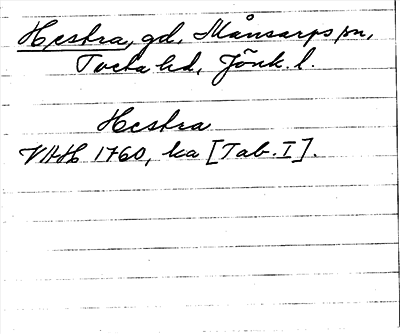 Hestra, gd, Månsarps sn,
Tveta hd, Jönk. l.
Hestra
VHH 1760, ka [Tab. I].